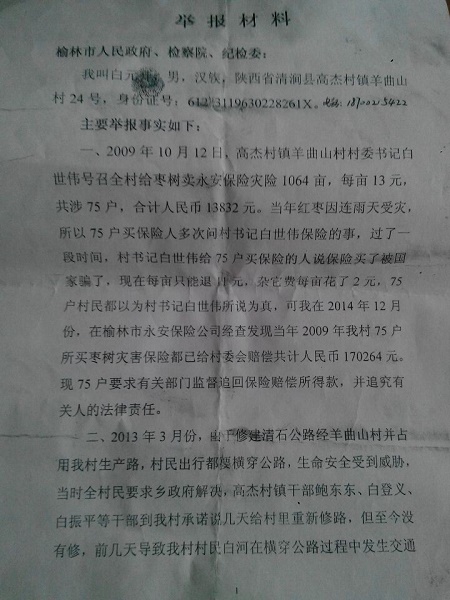 举报材料
榆林市人民政府、检察院、纪检委：
我叫白元 男，汉族，陕西省清涧县高杰村镇羊曲山
村24号，身份证号：612 3119630228261X。
主要举报事实如下：
一、2009年10月12日，高杰村镇羊曲山村村委书记白
世伟号召全村给枣树卖永安保险灾险1064亩，每亩13元，
共涉75户，合计人民币13832元。当年红枣因连雨天受灾，
所以75户买保险人多次问村书记白世伟保险的事，过了一
段时间，村书记白世伟给75户买保险的人说保险买了被国
家骗了，现在每亩只能退11元，杂它费每亩花了2元，75
户村民都以为村书记白世伟所说为真，可我在2014年12月
份，在榆林市永安保险公司经查发现当年2009年我村75户
所买枣树灾害保险都已给村委会赔偿共计人民币170264元。
现75户要求有关部门监督追回保险赔偿所得款，并追究有
关人的法律责任。
二、2013年3月份，由于修建清石公路经羊曲山村并占
用我村生产路，村民出行都要横穿公路，生命安全受到威胁，
当时全村民要求乡政府解决，高杰村镇干部鲍东东、白登义、
白振平等干部到我村承诺说几天给村里重新修路，但至今没
有修，前几天导致我村村民白河在横穿公路过程中发生交通
1